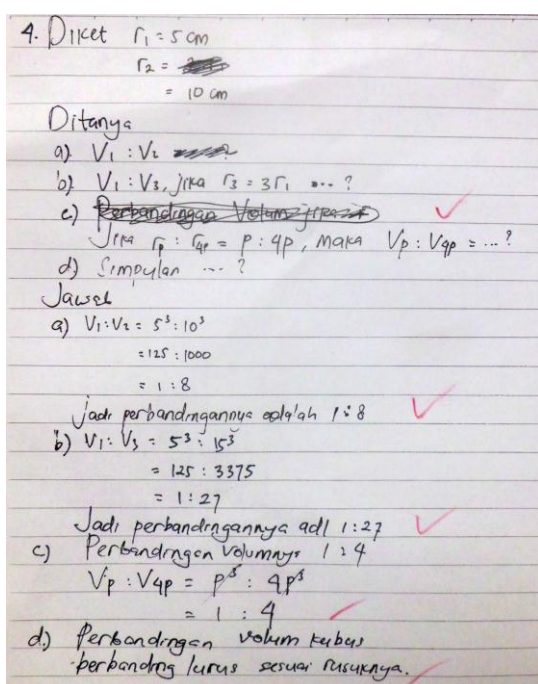 4. Diket r₁ = 5 cm
r₂ =
= 10 cm
Ditanya
a) V₁ : V₂
b) V₁ : V₃, jika r₃ = 3r₁ ... ?
c) Perbandingan Volum jika
Jika rₚ : r₄ₚ = p : 4p, maka Vₚ : V₄ₚ = ... ?
d) Simpulan ... ?
Jawab
a) V₁ : V₂ = 5³ : 10³
= 125 : 1000
= 1 : 8
Jadi perbandingannya adalah 1 : 8
b) V₁ : V₃ = 5³ : 15³
= 125 : 3375
= 1 : 27
Jadi perbandingannya adl 1 : 27
c) Perbandingan Volumnya 1 : 4
Vp : V4p = p³ : 4p³
= 1 : 4
d.) Perbandingan volum kubus
berbanding lurus sesuai rusuknya.